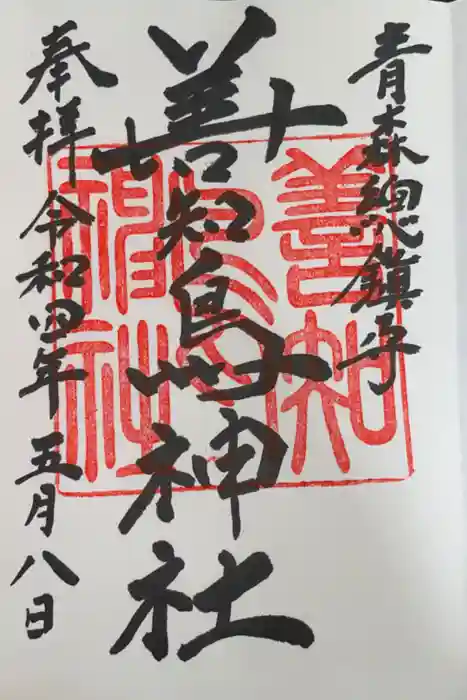 青森總鎮守
善知鳥神社
奉拝 令和四年 五月八日
善知
神社